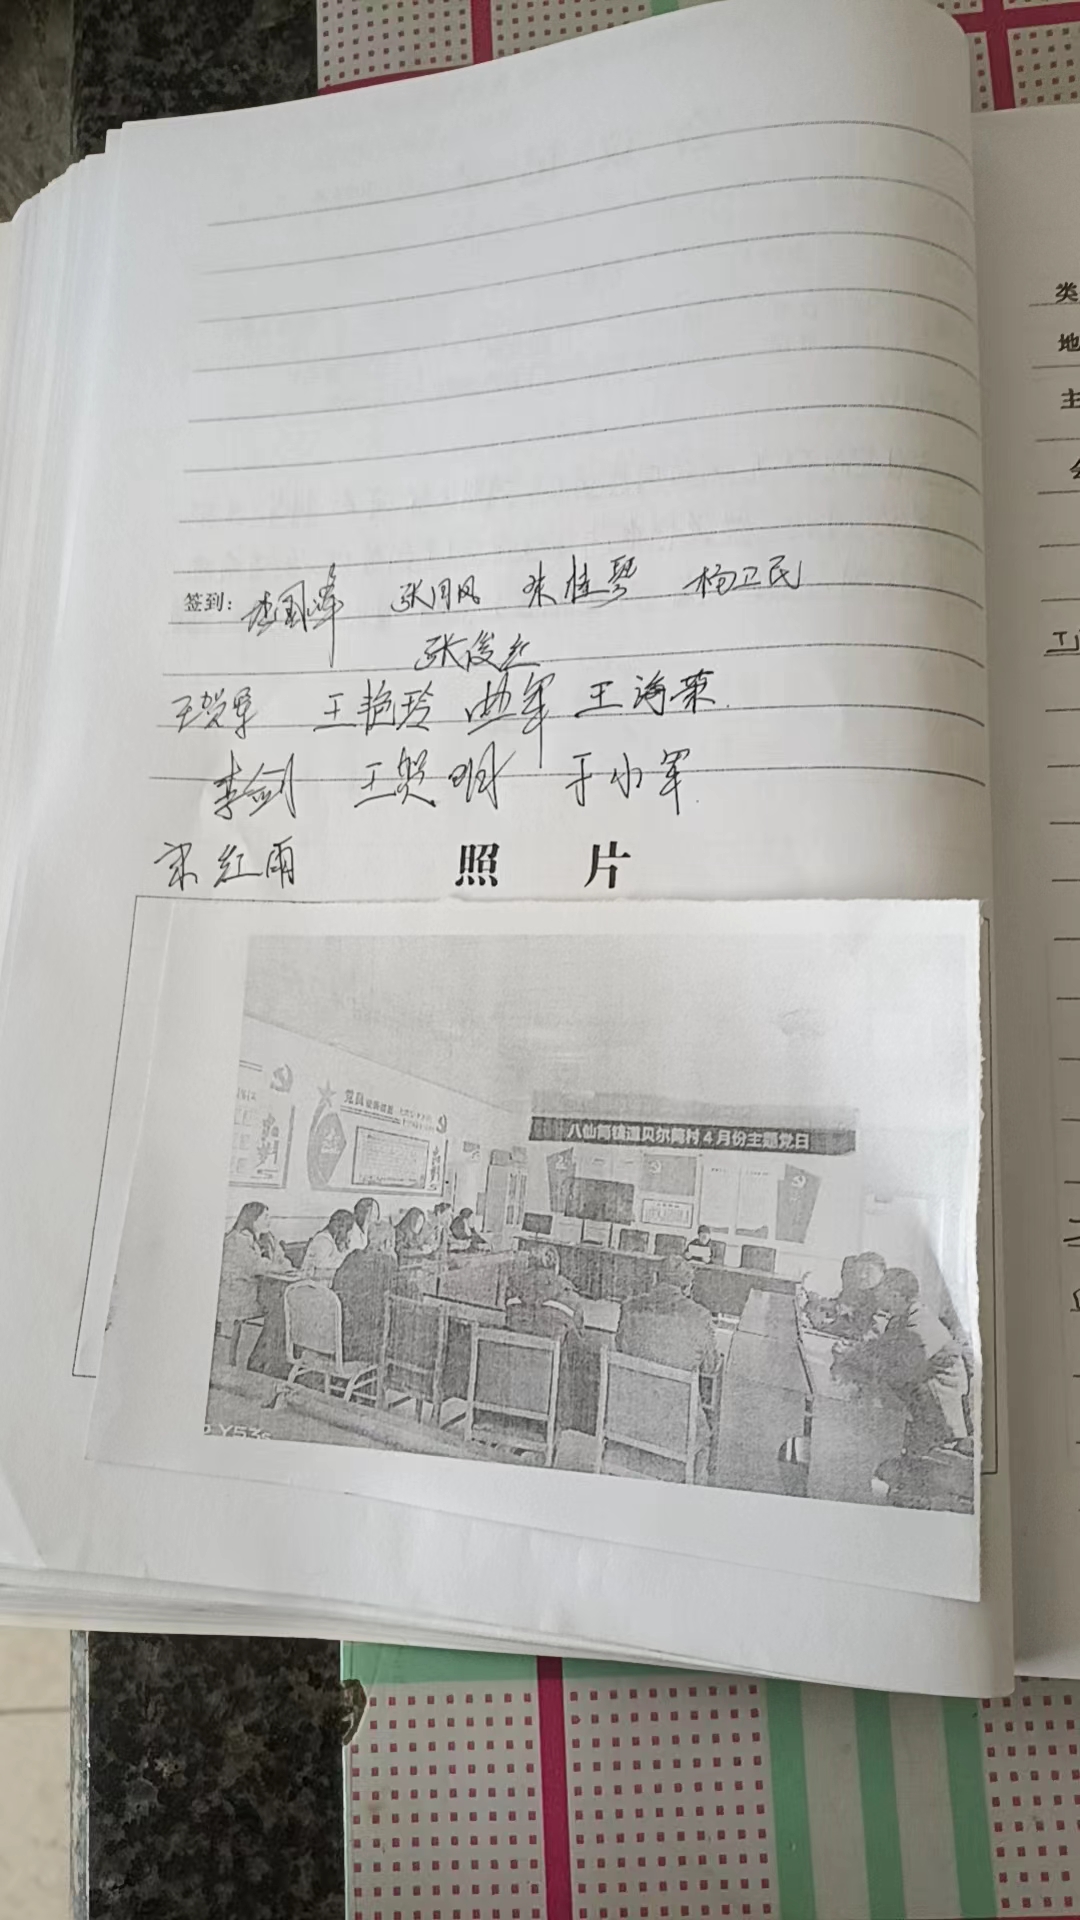 签到：李国峰 张月凤 朱桂琴 杨卫民
张俊红
王贺军 王艳玲 曲军 王海荣
李剑 王贺明 于小军
宋红雨
照 片
八仙筒镇道贝尔筒村4月份主题党日
Y53s
类
地
主